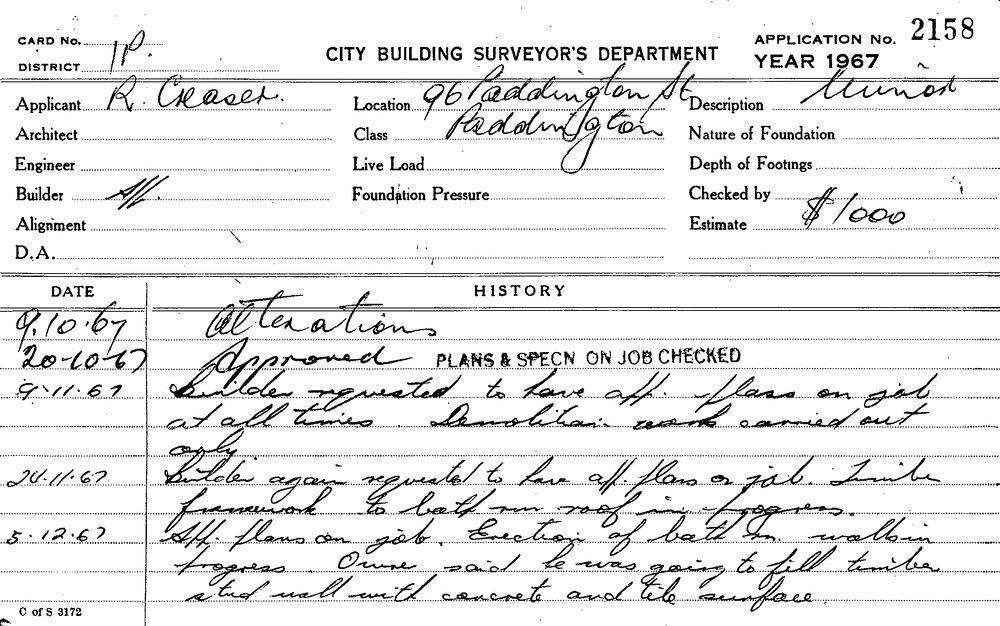 CARD No. 2158
DISTRICT P. CITY BUILDING SURVEYOR'S DEPARTMENT APPLICATION No.
YEAR 1967
Applicant R. Creaser. Location 96 Paddington St Description Minor
Architect Class Paddington Nature of Foundation
Engineer Live Load Depth of Footings
Builder Foundation Pressure Checked by
Alignment Estimate $1000
D.A.
DATE HISTORY
9.10.67 Alterations
20-10-67 Approved PLANS & SPECN ON JOB CHECKED
9.11.67 Builder requested to have app. plans on job
at all times. Demolition work carried out
only.
24.11.67 Builder again requested to have app. plans on job. Timber
framework to bath rm roof in progress.
5.12.67 App. plans on job. Erection of bath rm. walls in
progress. Owner said he was going to fill timber
stud wall with concrete and tile surface.
C of S 3172